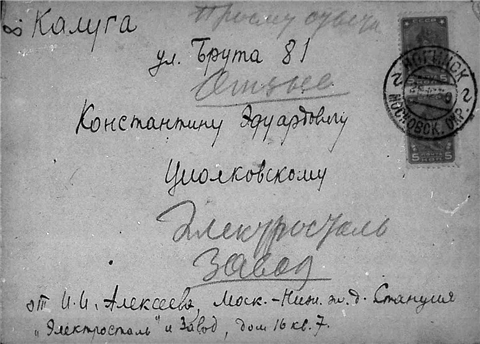 г. Калуга
Прошу ответа
ул. Брута 81
Константину Эдуардовичу
Циолковскому
Электросталь
Завод
от И.И. Алексеева, Моск.-Ниж. ж.д. Станция
"Электросталь" и Завод, дом 16 кв. 7.
НОГИНСК
МОСКОВСК. ОКР.
2 2
5 5